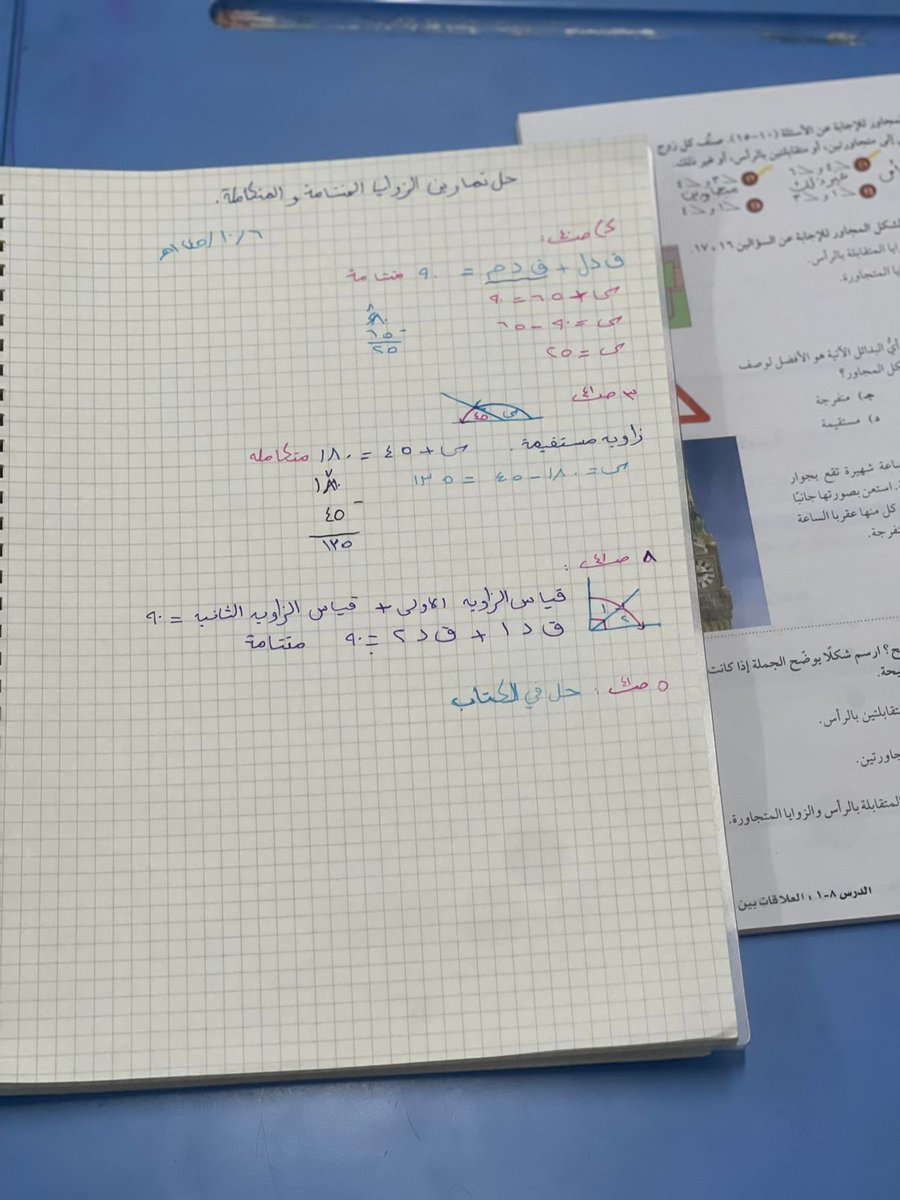 حل تمارين الزوايا المتتامة و المتكاملة.
١٤٤٥/١٠/٦هـ
ق د ل + ق د م = ٩٠ متتامة
س + ٦٥ = ٩٠
س = ٩٠ - ٦٥
س = ٢٥
٦٥ -
٢٥
٣ ص٤١
س
٤٥
زاوية مستقيمة . س + ٤٥ = ١٨٠ متكاملة
س = ١٨٠ - ٤٥ = ١٣٥
١٨٠
٤٥ -
١٣٥
٨ ص٤١ :
١
٢
قياس الزاويه الاولى + قياس الزاويه الثانيه = ٩٠
ق د ١ + ق د ٢ = ٩٠ متتامة
٥ ص٤١ : حل في الكتاب
المجاور للإجابة عن الأسئلة (١٠-١٥). صنّف كل زوج
إلى متجاورتين، أو متقابلتين بالرأس، أو غير ذلك
غير ذلك
متجاورتين
لشكل المجاور للإجابة عن السؤالين ١٦، ١٧.
ايا المتقابلة بالرأس.
يا المتجاورة.
أيُّ البدائل الآتية هو الأفضل لوصف
كل المجاور؟
جـ) منفرجة
د) مستقيمة
ساعة شهيرة تقع بجوار
استعن بصورتها جانبًا
كل منها عقربا الساعة
نفرجة.
ح؟ ارسم شكلًا يوضّح الجملة إذا كانت
يحة.
تقابلتين بالرأس.
جاورتين.
المتقابلة بالرأس والزوايا المتجاورة.
الدرس ٨-١ : العلاقات بين